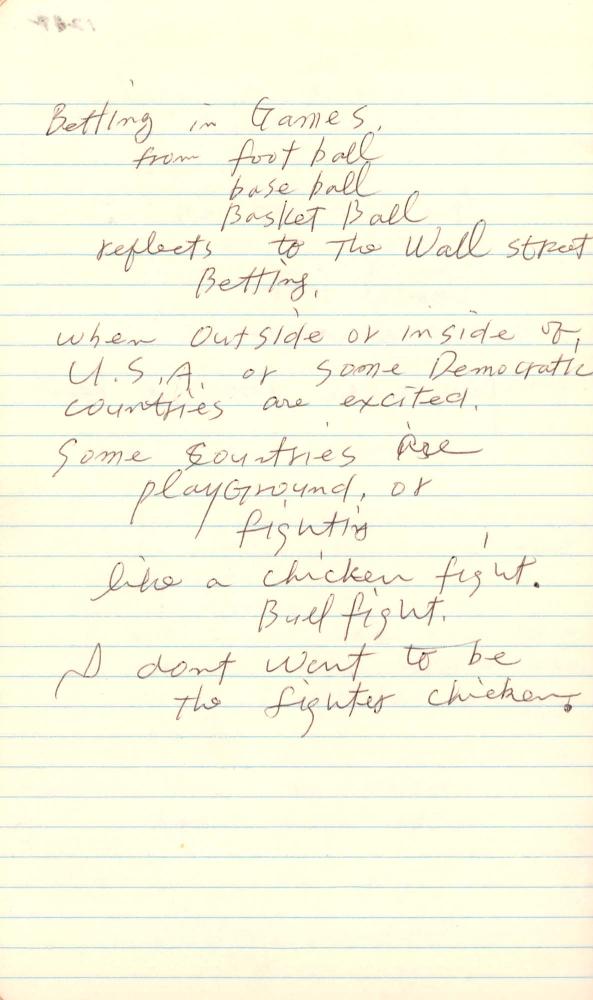 Betting in Games,
from foot ball
base ball
Basket Ball
reflects to The Wall street
Betting.
when Outside or inside of,
U.S.A. or some Democratic
countries are excited.
Some Countries are
playGround, or
fightin
like a chicken fight.
Bull fight.
I dont want to be
the fighter chicken.